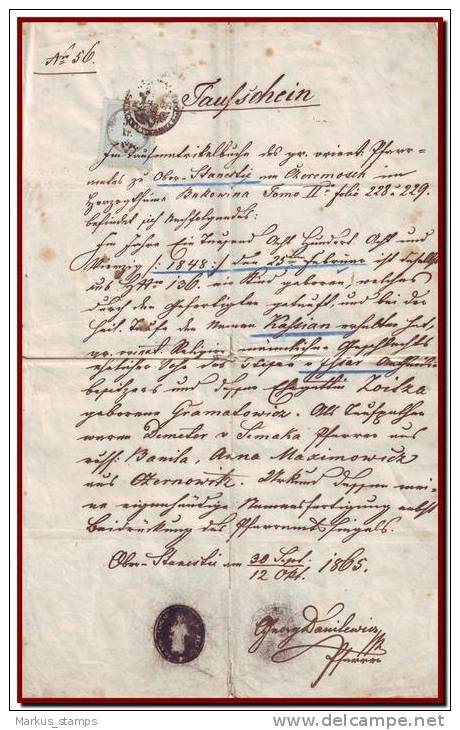 No 56.
Taufschein
Im Taufmatrikelbuche des gr. orient. Pfarr-
amtes zu Ober-Stanestie am Czeremosch im
Herzogthume Bukowina Tomo II folio 228 u 229.
befindet sich nachfolgendes:
Im Jahre Ein Tausend Acht Hundert Acht und
Vierzig /: 1848 :/ den 25ten Februar ist daselbst
aus HNro 136. ein Kind geboren, welches
durch den Gefertigten getauft, und bei der
heil. Taufe den Namen Kassian erhalten hat,
gr. orient. Religion männlichen Geschlechts
ehelicher Sohn des
besitzers und dessen Ehegattin Zoitza
geborene Gramatowicz. Als Taufpathen
waren Demeter v Simaka Pfarrer aus
russ: Banila, Anna Maximowicz
aus Czernowitz. Urkund dessen mei-
ne eigenhändige Namensfertigung nebst
Beidrückung des Pfarramtssiegels.
Ober-Stanestie am 30 Sept. / 12 Okt. 1865.
Georg Danilewicz
Pfarrer
Markus_stamps
www.delcampe.net